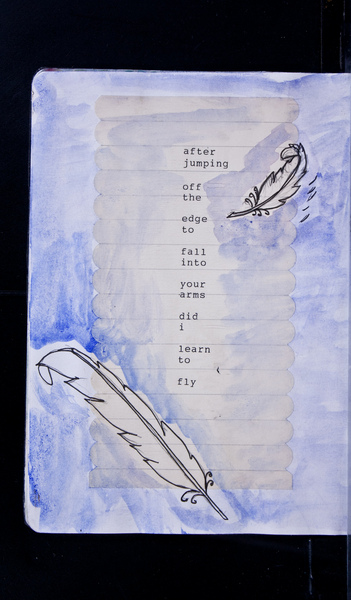 after
jumping
off
the
edge
to
fall
into
your
arms
did
i
learn
to
fly